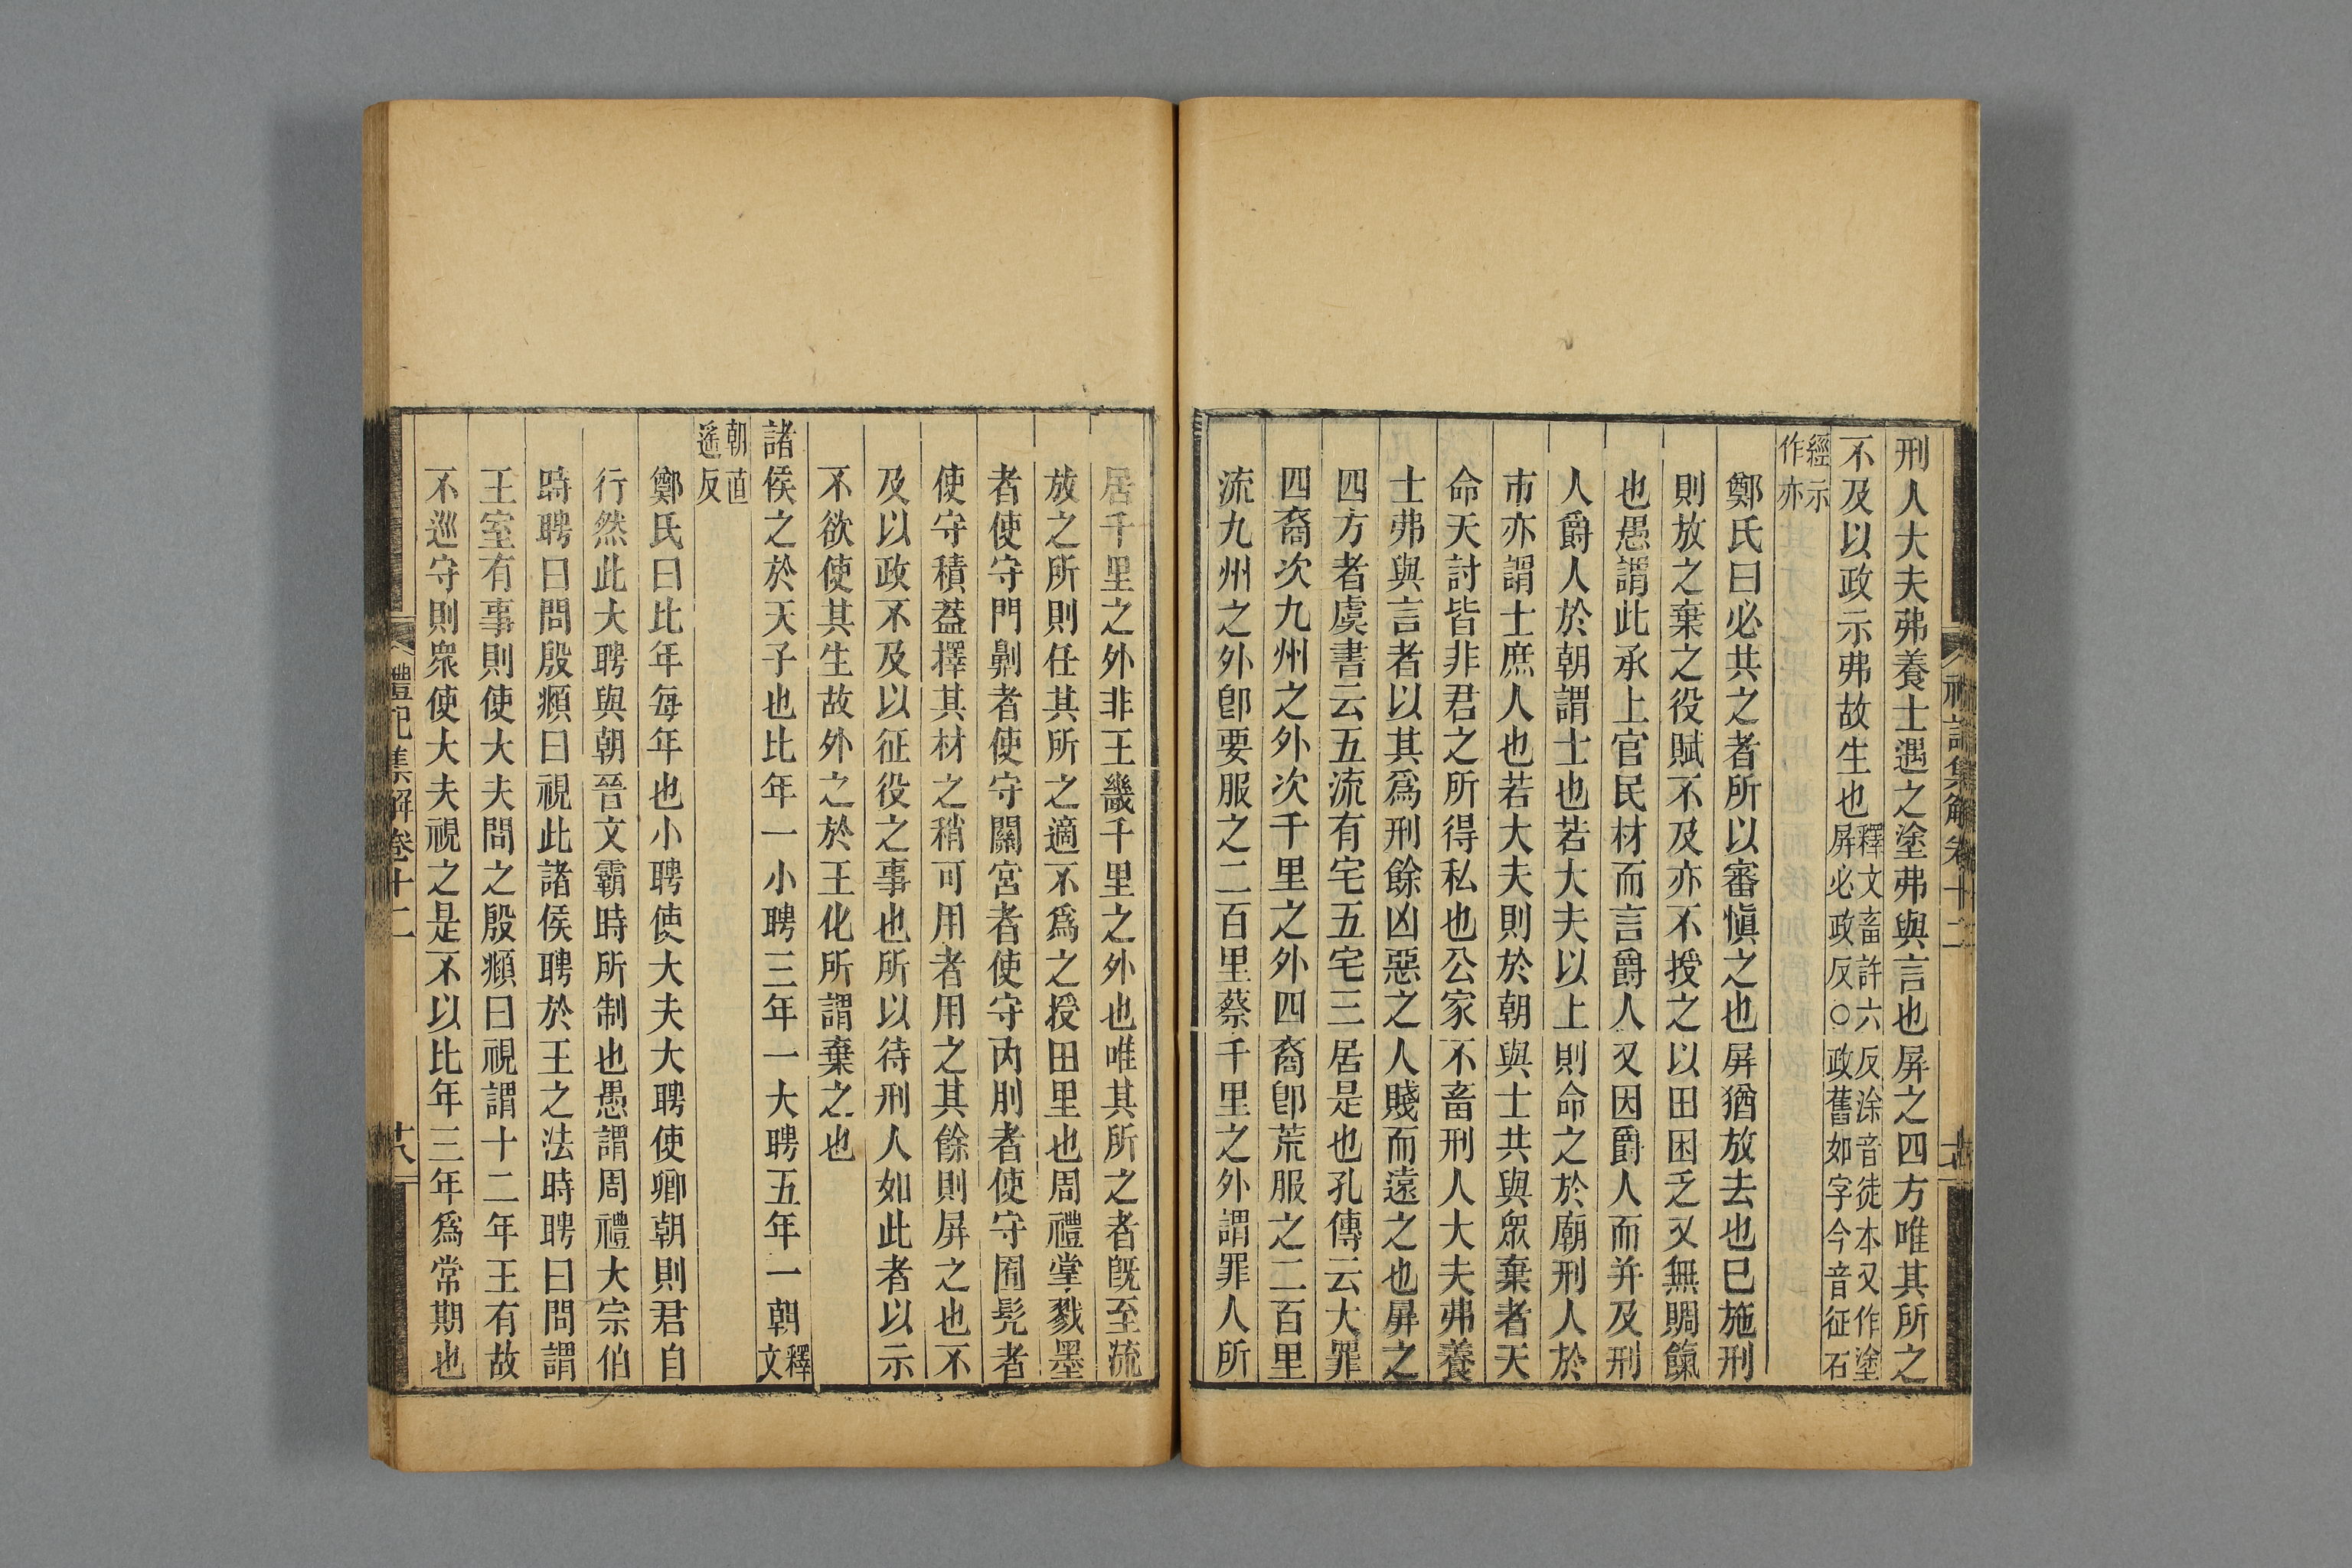 刑人大夫弗養士遇之塗弗與言也屏之四方唯其所之
不及以政示弗故生也釋文畜許六反涂音徒本又作塗屏必政反○政舊如字今音征石
經示作亦
鄭氏曰必共之者所以審慎之也屏猶放去也已施刑
則放之棄之役賦不及亦不授之以田困乏又無賙餼
也愚謂此承上官民材而言爵人又因爵人而并及刑
人爵人於朝謂士也若大夫以上則命之於廟刑人於
市亦謂士庶人也若大夫則於朝與士共與眾棄者天
命天討皆非君之所得私也公家不畜刑人大夫弗養
士弗與言者以其爲刑餘凶惡之人賤而遠之也屏之
四方者虞書云五流有宅五宅三居是也孔傳云大罪
四裔次九州之外次千里之外四裔卽荒服之二百里
流九州之外卽要服之二百里蔡千里之外謂罪人所
居千里之外非王畿千里之外也唯其所之者旣至流
放之所則任其所之適不爲之授田里也周禮掌戮墨
者使守門劓者使守關宮者使守内刖者使守囿髡者
使守積葢擇其材之稍可用者用之其餘則屏之也不
及以政不及以征役之事也所以待刑人如此者以示
不欲使其生故外之於王化所謂棄之也
諸侯之於天子也比年一小聘三年一大聘五年一朝釋文
朝直遥反
鄭氏曰比年每年也小聘使大夫大聘使卿朝則君自
行然此大聘與朝晉文霸時所制也愚謂周禮大宗伯
時聘曰問殷頫曰視此諸侯聘於王之法時聘曰問謂
王室有事則使大夫問之殷頫曰視謂十二年王有故
不巡守則眾使大夫視之是不以比年三年爲常期也
禮記集解卷十二